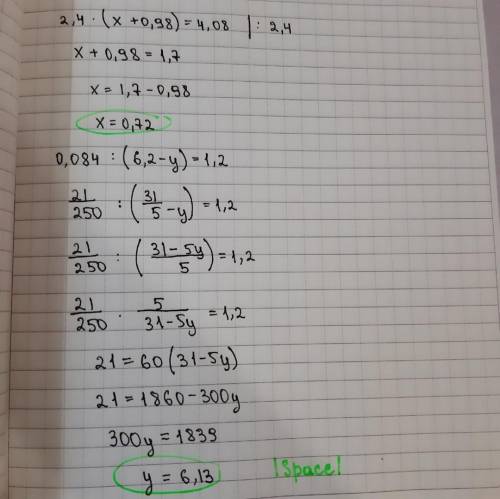 2,4 · (x + 0,98) = 4,08 | : 2,4
x + 0,98 = 1,7
x = 1,7 - 0,98
x = 0,72
0,084 : (6,2 - y) = 1,2
21/250 : (31/5 - y) = 1,2
21/250 : (31 - 5y/5) = 1,2
21/250 · 5/31 - 5y = 1,2
21 = 60 (31 - 5y)
21 = 1860 - 300y
300y = 1839
y = 6,13
|Space|